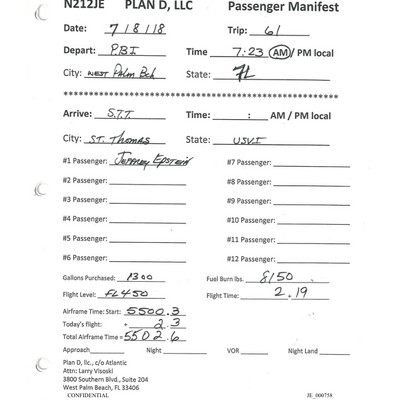 N212JE PLAN D, LLC Passenger Manifest
Date: 7/8/18 Trip: 61
Depart: PBI Time 7:23 AM / PM local
City: WEST Palm Bch State: FL
Arrive: STT Time: : AM / PM local
City: ST. Thomas State: USVI
#1 Passenger: Jeffrey Epstein #7 Passenger:
#2 Passenger: #8 Passenger:
#3 Passenger: #9 Passenger:
#4 Passenger: #10 Passenger:
#5 Passenger: #11 Passenger:
#6 Passenger: #12 Passenger:
Gallons Purchased: 1300 Fuel Burn lbs. 8150
Flight Level: FL450 Flight Time: 2.19
Airframe Time: Start: 5500.3
Today's flight: + 2.3
Total Airframe Time = 5502.6
Approach Night VOR Night Land
Plan D, llc, c/o Atlantic
Attn: Larry Visoski
3800 Southern Blvd., Suite 204
West Palm Beach, FL 33406
CONFIDENTIAL JE_000758